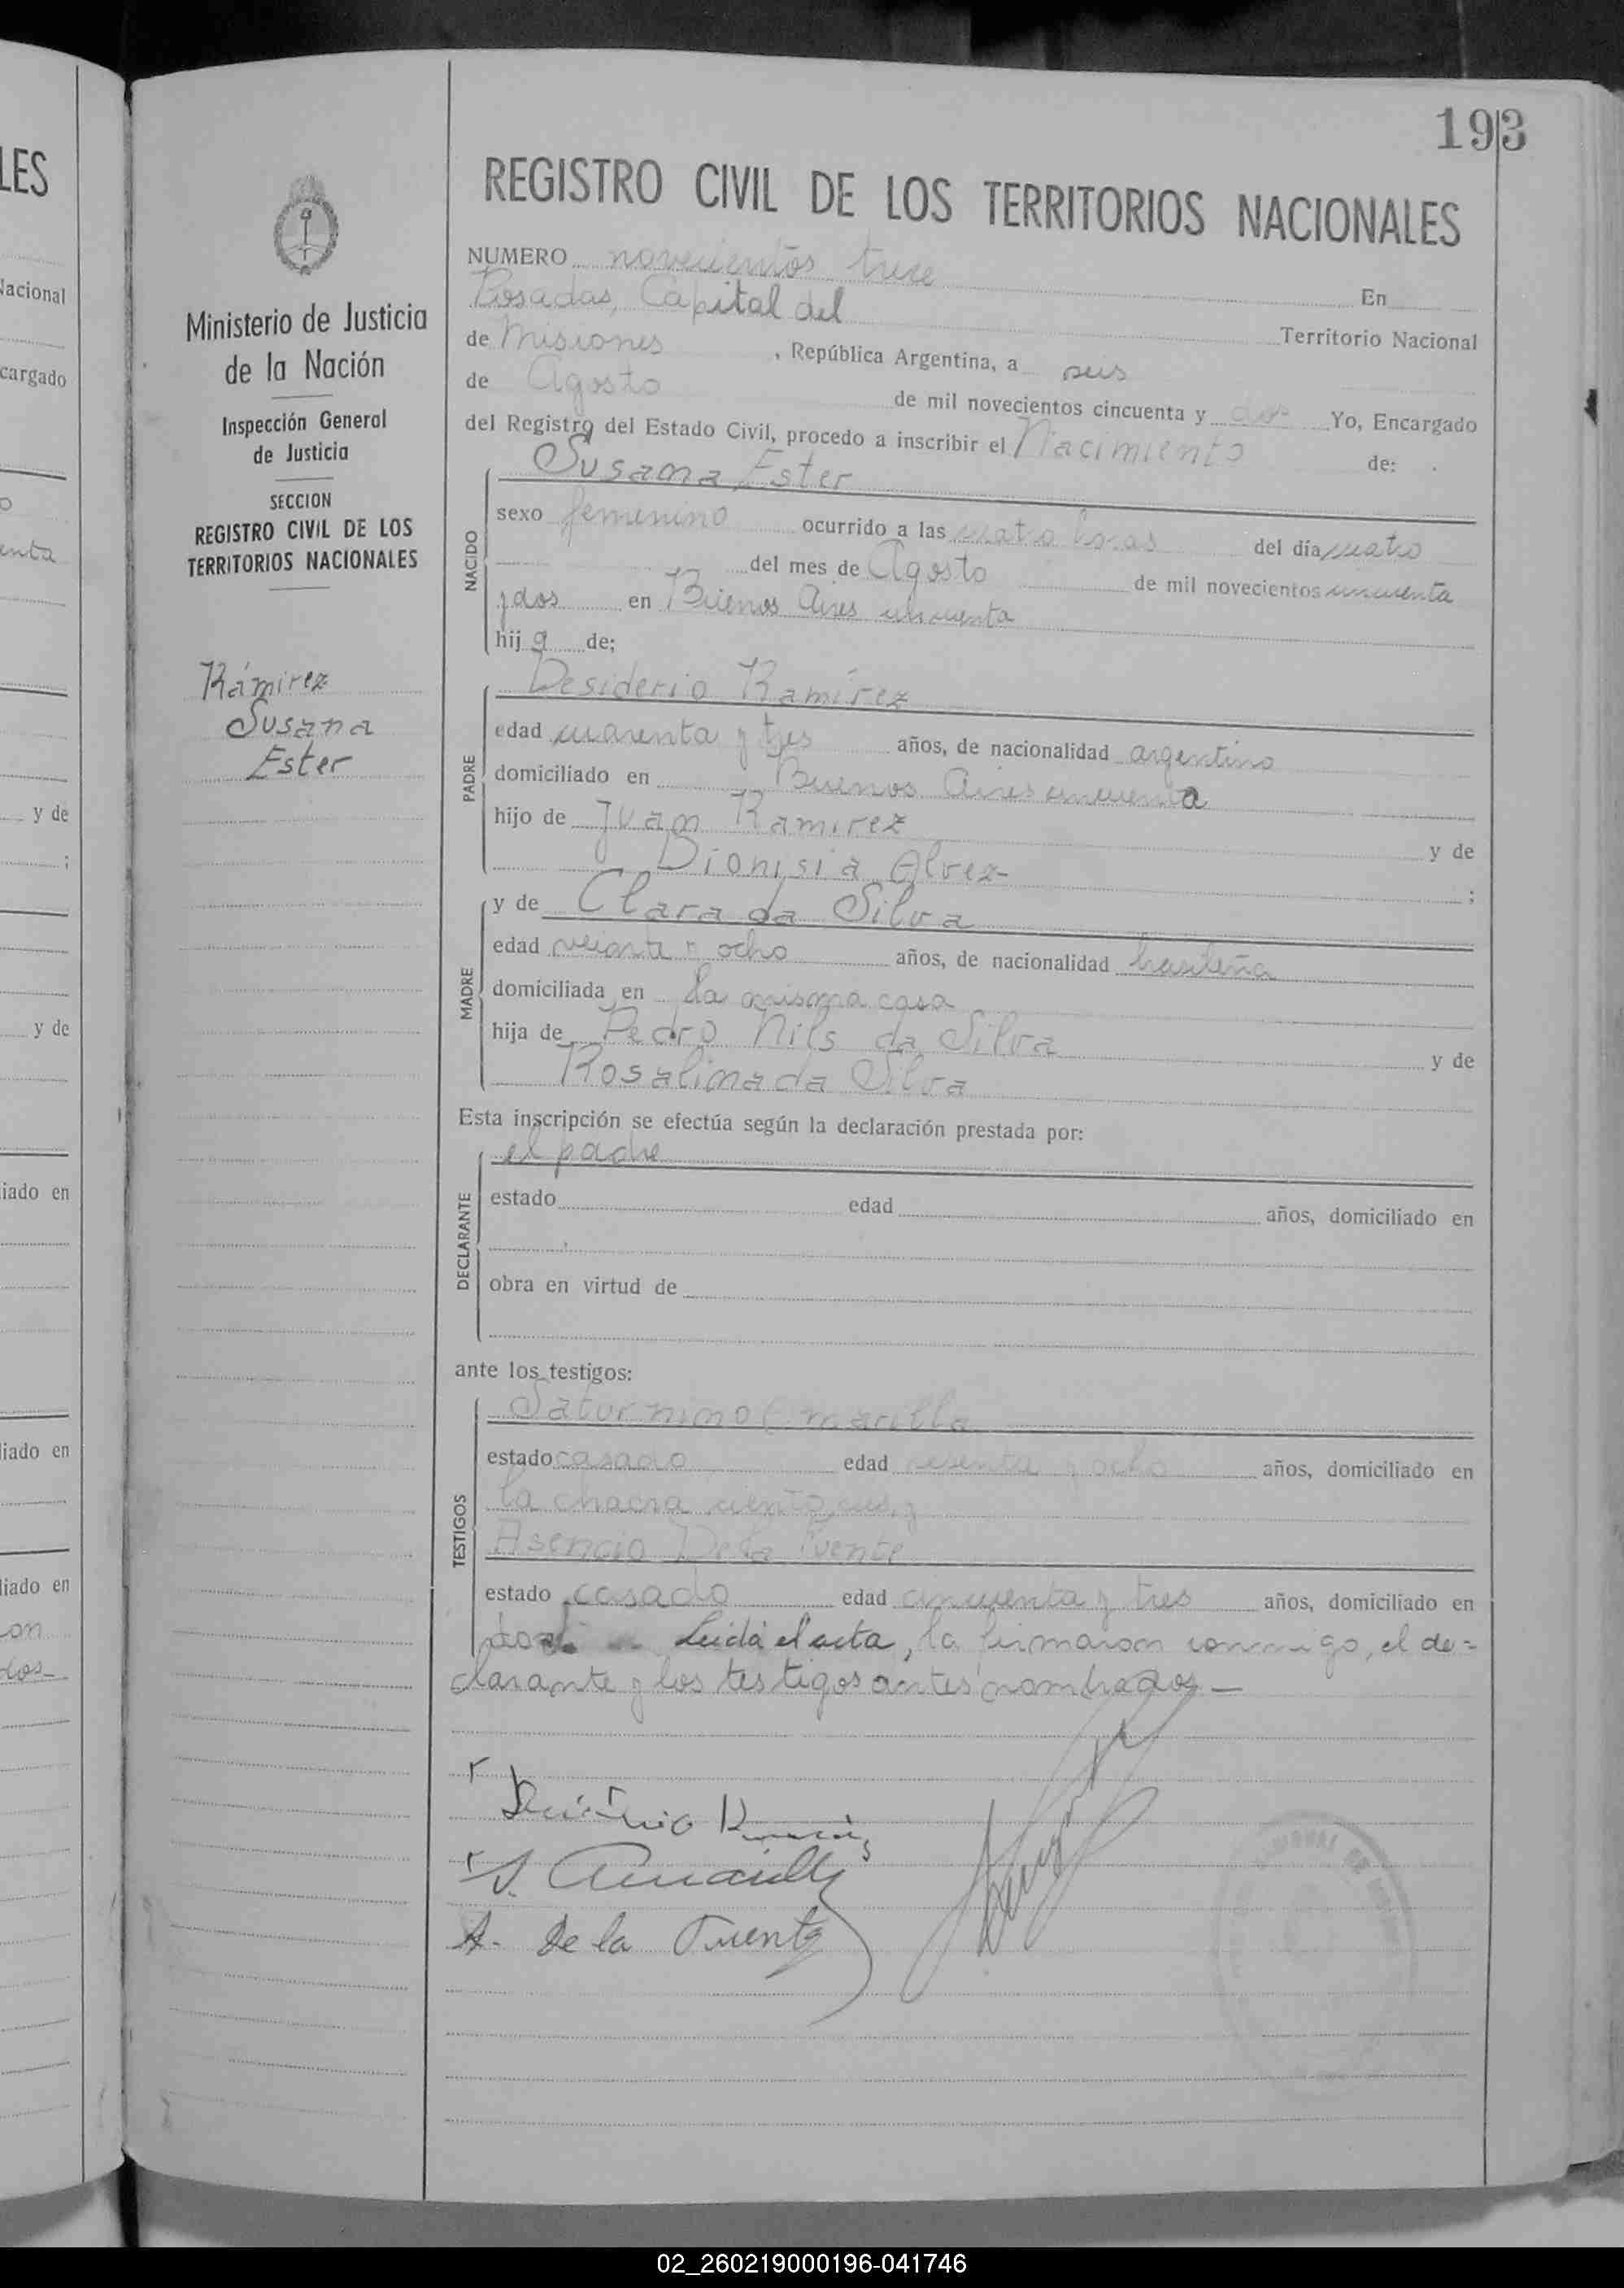 193
LES
REGISTRO CIVIL DE LOS TERRITORIOS NACIONALES
NUMERO novecientos trece
En
Posadas, Capital del
Territorio Nacional
de Misiones, República Argentina, a seis
de Agosto de mil novecientos cincuenta y dos Yo, Encargado
del Registro del Estado Civil, procedo a inscribir el Nacimiento de:
Nacional
cargado
Ministerio de Justicia
de la Nación
Inspección General
de Justicia
SECCION
REGISTRO CIVIL DE LOS
TERRITORIOS NACIONALES
Rámirez
Susana
Ester
NACIDO
Susana Ester
sexo femenino ocurrido a las cuatro horas del día cuatro
del mes de Agosto de mil novecientos cincuenta
y dos en Buenos Aires cincuenta
hij a de;
PADRE
Desiderio Ramírez
edad cuarenta y tres años, de nacionalidad argentino
domiciliado en Buenos Aires cincuenta
hijo de Juan Ramirez y de
Dionisia Alvez-
;
MADRE
y de Clara da Silva
edad veinte y ocho años, de nacionalidad brasileña
domiciliada en la misma casa
hija de Pedro Nils da Silva y de
Rosalina da Silva
Esta inscripción se efectúa según la declaración prestada por:
DECLARANTE
el padre
estado edad años, domiciliado en
obra en virtud de
ante los testigos:
TESTIGOS
Saturnino Amarilla
estado casado edad sesenta y ocho años, domiciliado en
la chacra ciento seis, y
Asencio De la Fuente
estado casado edad cincuenta y tres años, domiciliado en
Leida el acta, la firmaron conmigo, el de=
clarante y los testigos antes nombrados.—
Desiderio Ramírez
S. Amarilla
A. De la Fuente
enta
y de
;
y de
iado en
liado en
liado en
on
dos
02_260219000196-041746